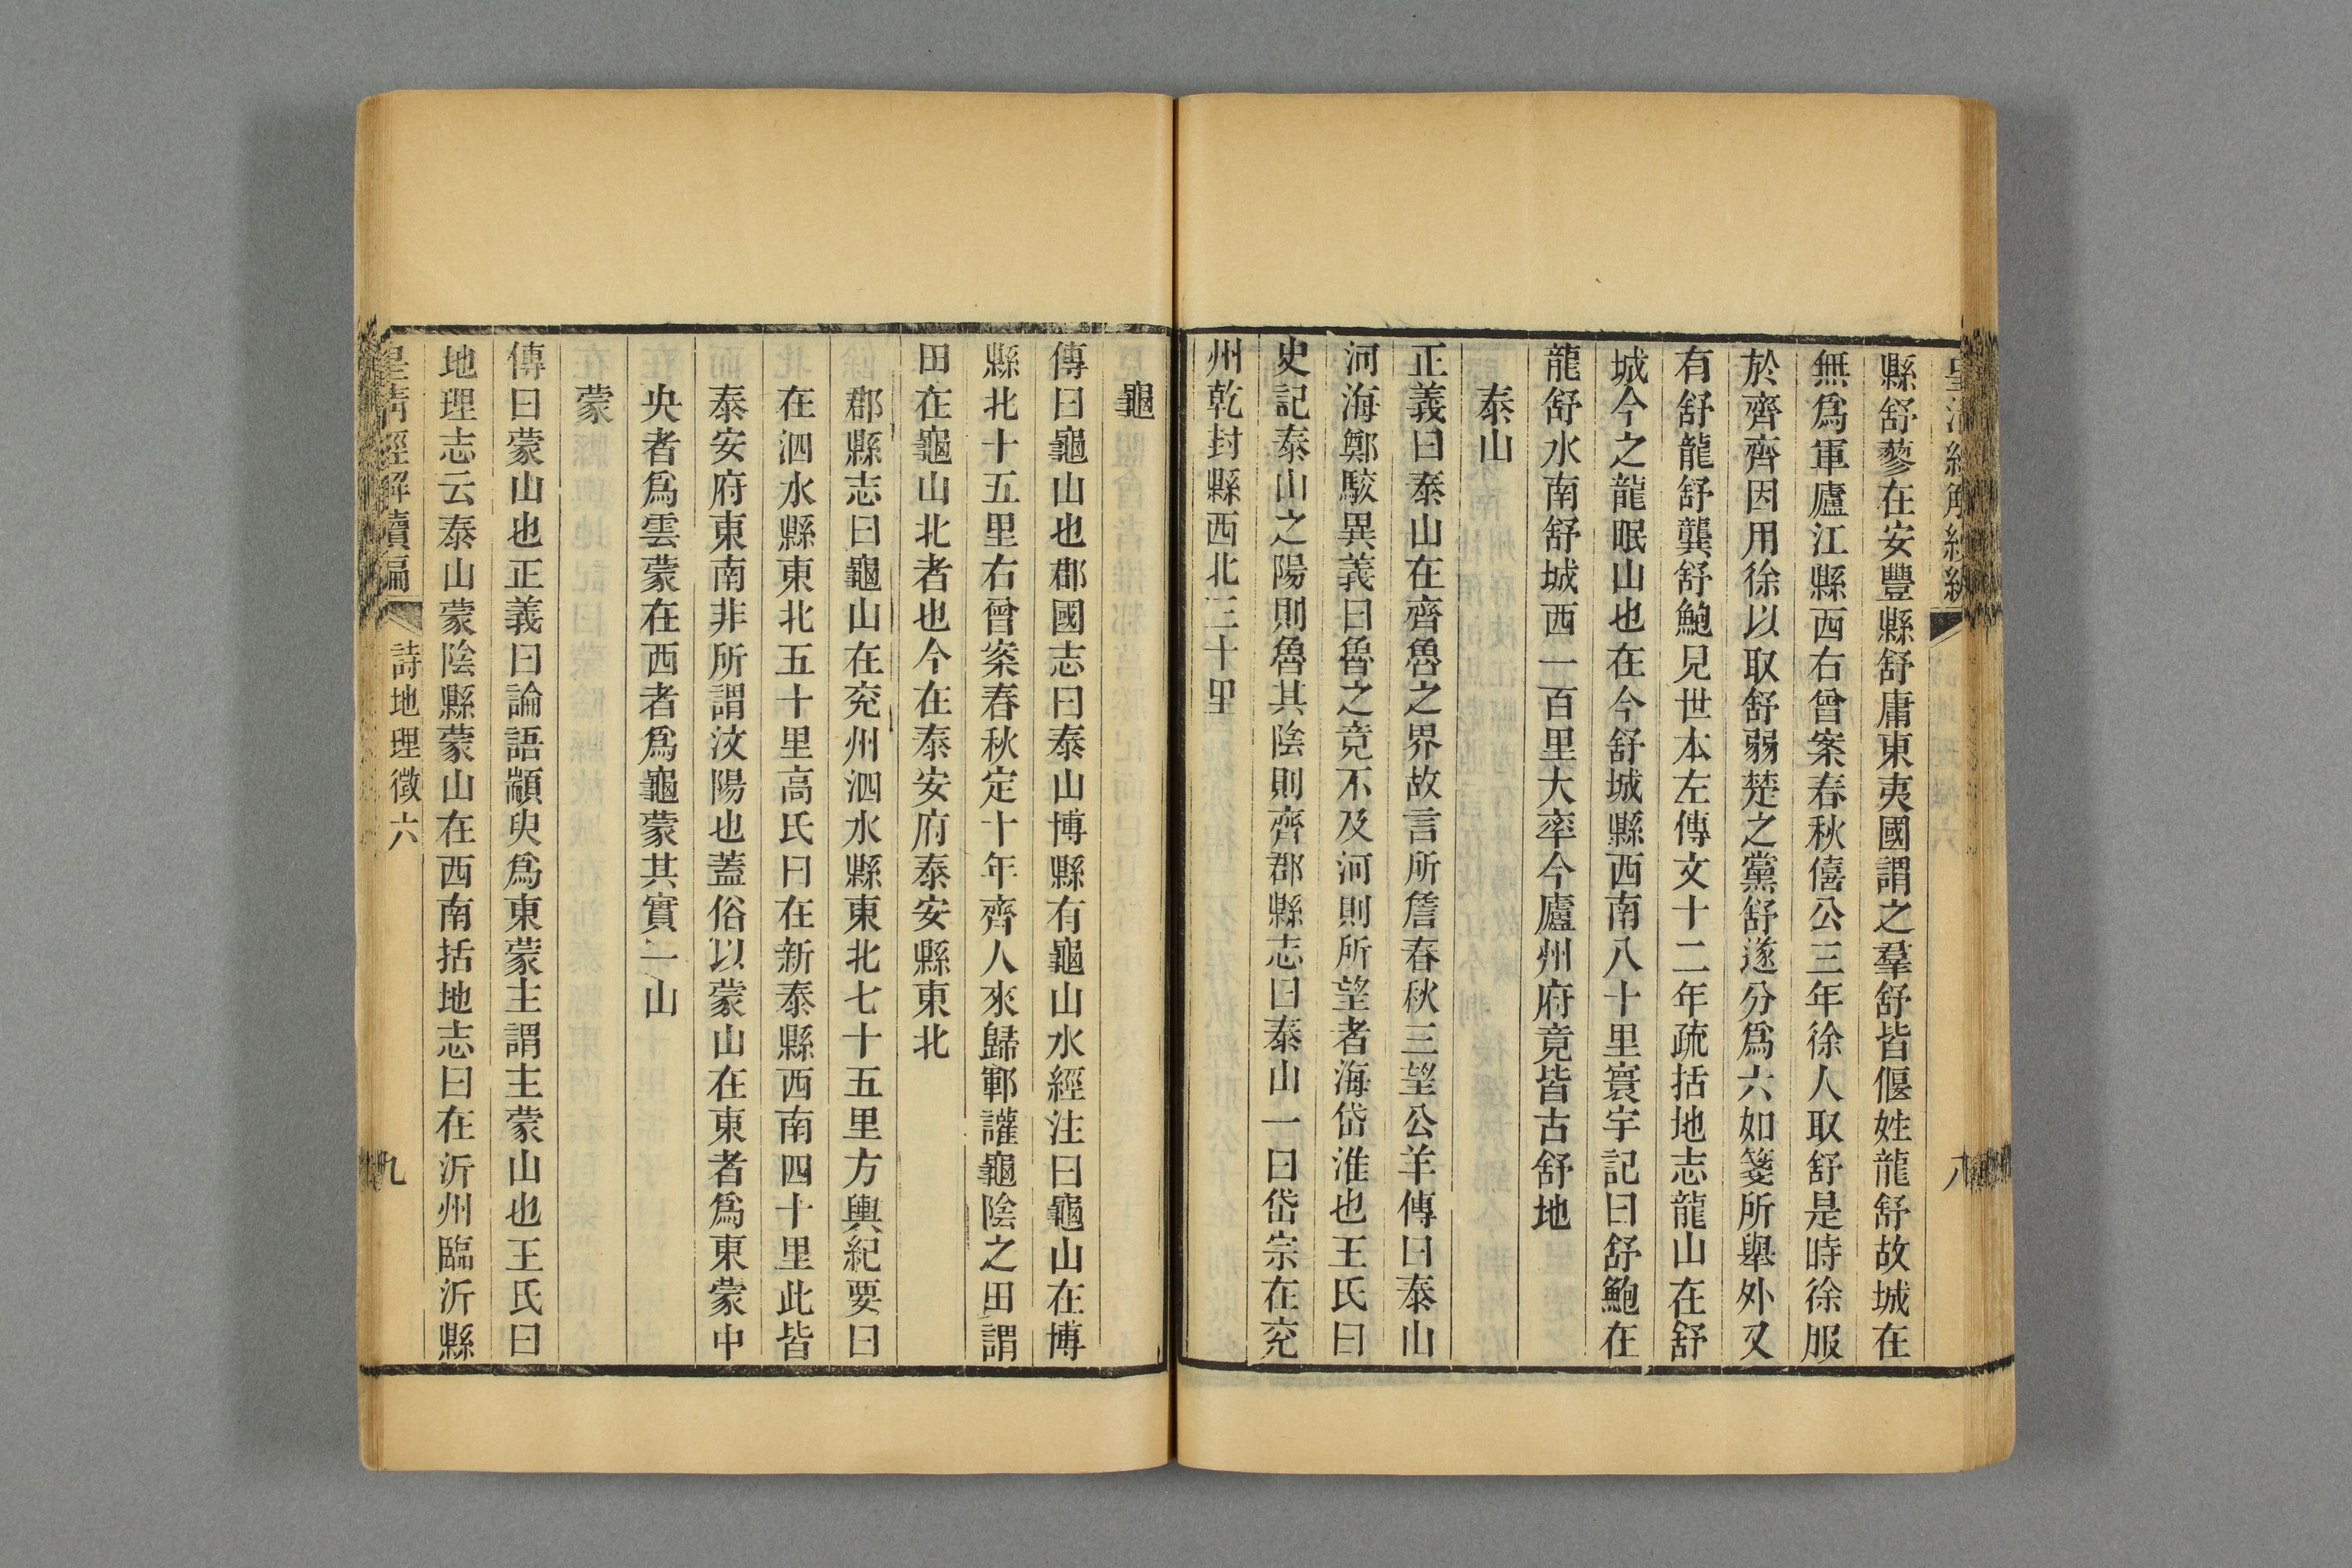 縣舒蓼在安豐縣舒庸東夷國謂之羣舒皆偃姓龍舒故城在
無爲軍廬江縣西右曾案春秋僖公三年徐人取舒是時徐服
於齊齊因用徐以取舒弱楚之黨舒遂分爲六如箋所舉外又
有舒龍舒龔舒鮑見世本左傳文十二年疏括地志龍山在舒
城今之龍眠山也在今舒城縣西南八十里寰宇記曰舒鮑在
龍舒水南舒城西一百里大率今廬州府竟皆古舒地
泰山
正義曰泰山在齊魯之界故言所詹春秋三望公羊傳曰泰山
河海鄭駮異義曰魯之竟不及河則所望者海岱淮也王氏曰
史記泰山之陽則魯其陰則齊郡縣志曰泰山一曰岱宗在兖
州乾封縣西北三十里
龜
傳曰龜山也郡國志曰泰山博縣有龜山水經注曰龜山在博
縣北十五里右曾案春秋定十年齊人來歸鄆讙龜陰之田謂
田在龜山北者也今在泰安府泰安縣東北
郡縣志曰龜山在兖州泗水縣東北七十五里方輿紀要曰
在泗水縣東北五十里高氏曰在新泰縣西南四十里此皆
泰安府東南非所謂汶陽也蓋俗以蒙山在東者爲東蒙中
央者爲雲蒙在西者爲龜蒙其實一山
蒙
傳曰蒙山也正義曰論語顓臾爲東蒙主謂主蒙山也王氏曰
地理志云泰山蒙陰縣蒙山在西南括地志曰在沂州臨沂縣
皇清經解續編
詩地理徵六
九